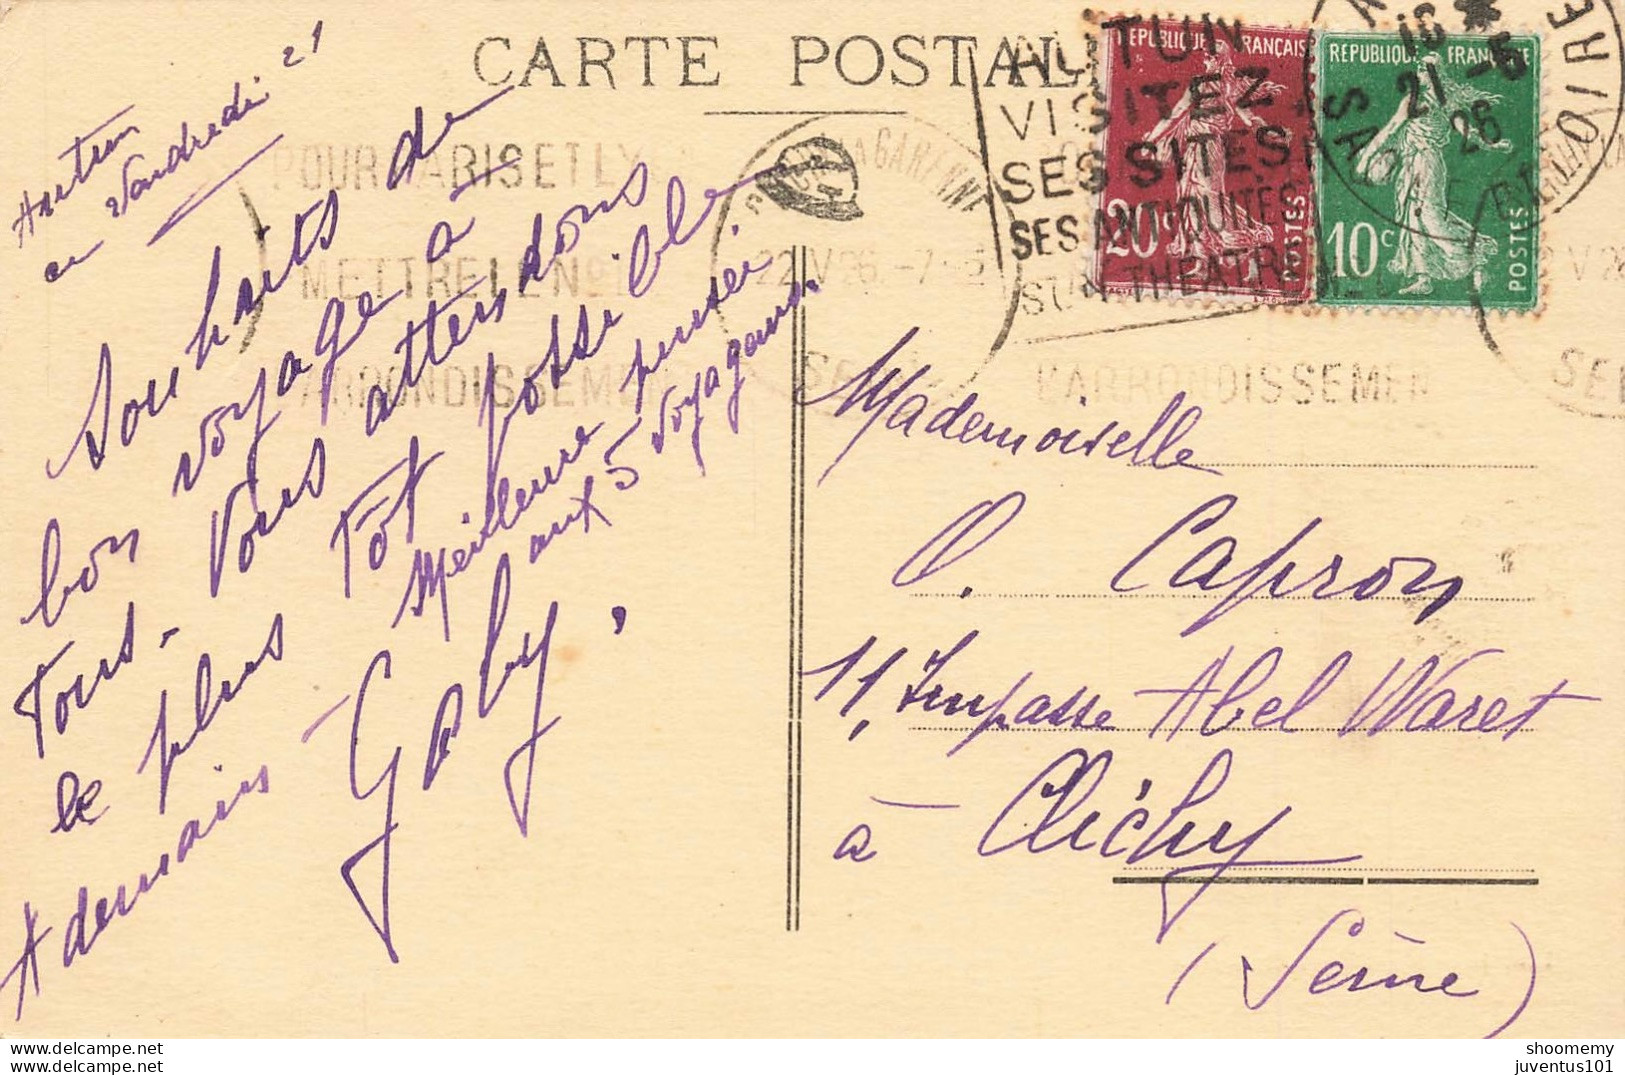 CARTE POSTALE
Autun
ce Vendredi 21
Souhaits de
bon voyage à
Tous. Vous attendons
le plus tot possible
A demain
Meilleure pensée
aux 5 voyageurs
Gaby.
AUTUN
VISITEZ
SES SITES
SES ANTIQUITÉS
SON THEATRE
REPUBLIQUE FRANÇAISE
20c
POSTES
REPUBLIQUE FRANÇAISE
10c
POSTES
16 *
21 - 5
26
SAONE
LOIRE
POUR PARIS ET LY
METTRE LE No
ARRONDISSEMEN
LA GARENNE
22 V 26 - 7
SEI
L'ARRONDISSEMEN
V 26
SEI
Mademoiselle
O. Capron
11, Impasse Abel Waret
à Clichy
(Seine)
shoomemy
juventus101